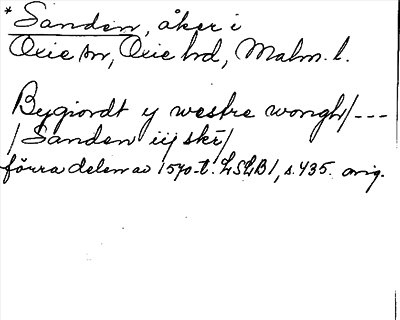 *Sanden, åker i
Oxie sn, Oxie hd, Malm. l.
Bygiordt y westre wongh/---
/Sanden iij skr/
förra delen av 1570-t. LSLB1, s. 435. orig.